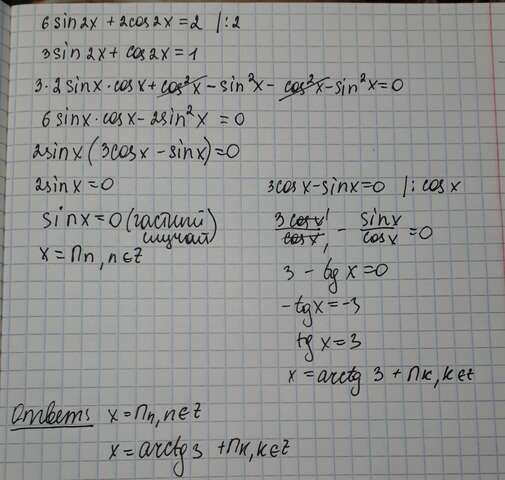 6sin2x + 2cos2x = 2 /:2
3sin2x + cos2x = 1
3·2sinx·cosx + cos²x - sin²x - cos²x - sin²x = 0
6sinx·cosx - 2sin²x = 0
2sinx(3cosx - sinx) = 0
2sinx = 0
sinx = 0 (частный
случай)
x = Пn, n∈Z
3cosx - sinx = 0 /: cosx
3cosx/cosx - sinx/cosx = 0
3 - tgx = 0
-tgx = -3
tgx = 3
x = arctg3 + Пк, к∈Z
Ответ: x = Пn, n∈Z
x = arctg3 + Пк, к∈Z